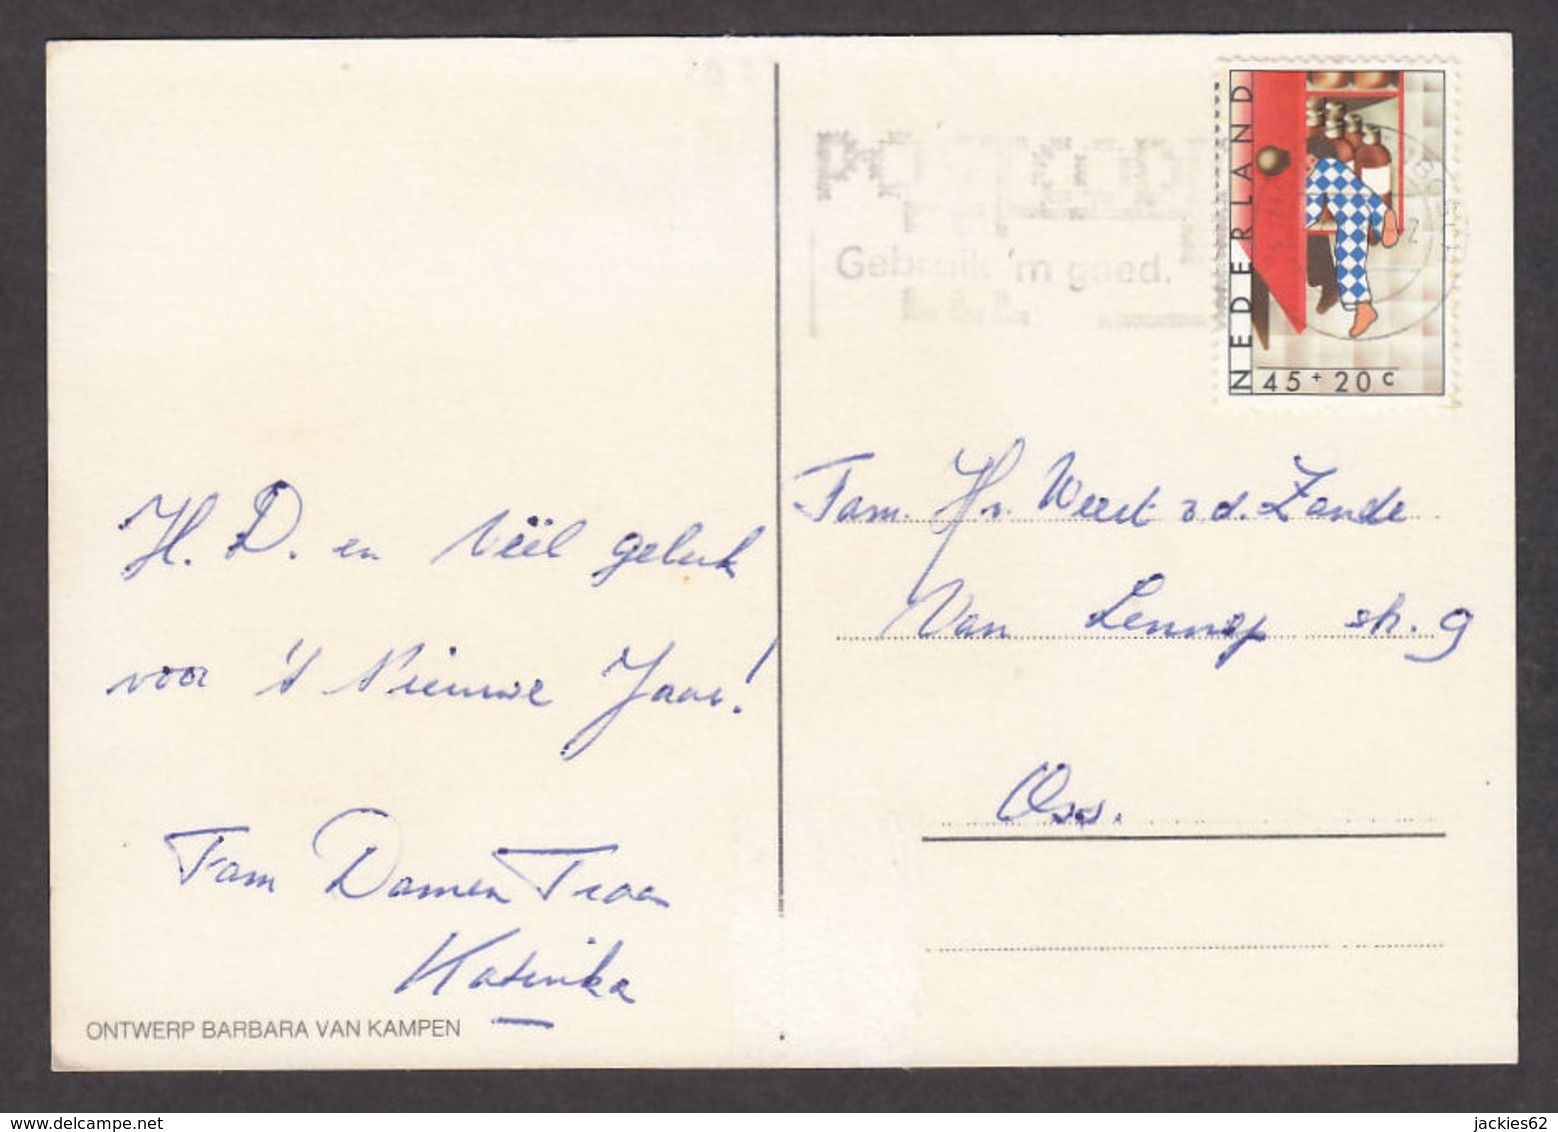 H. D. en véél geluk
voor 't Nieuwe Jaar!
Fam Damen Troon
Katinka
ONTWERP BARBARA VAN KAMPEN
postcode
Gebruik 'm goed.
NEDERLAND
45 + 20 c
Fam. Hr. Weert v.d. Zande
Van Lennep str. 9
Oss.
www.delcampe.net
jackies62